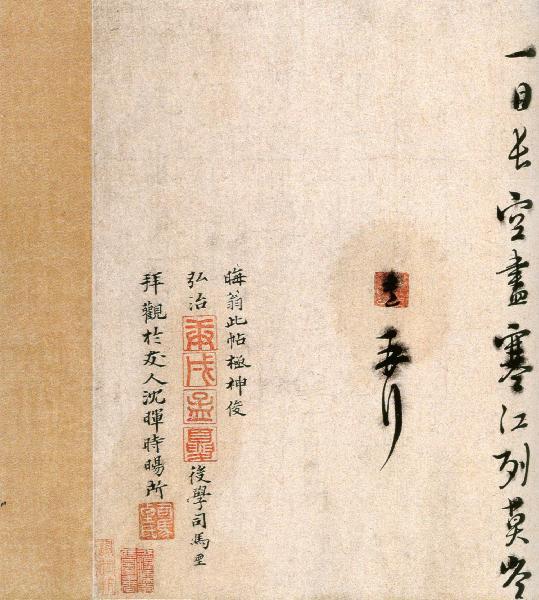 一目長空盡寒江列莫岑
晦翁此帖極神俊
弘治庚戌孟夏後學司馬垔
拜觀於友人沈暉時暘所